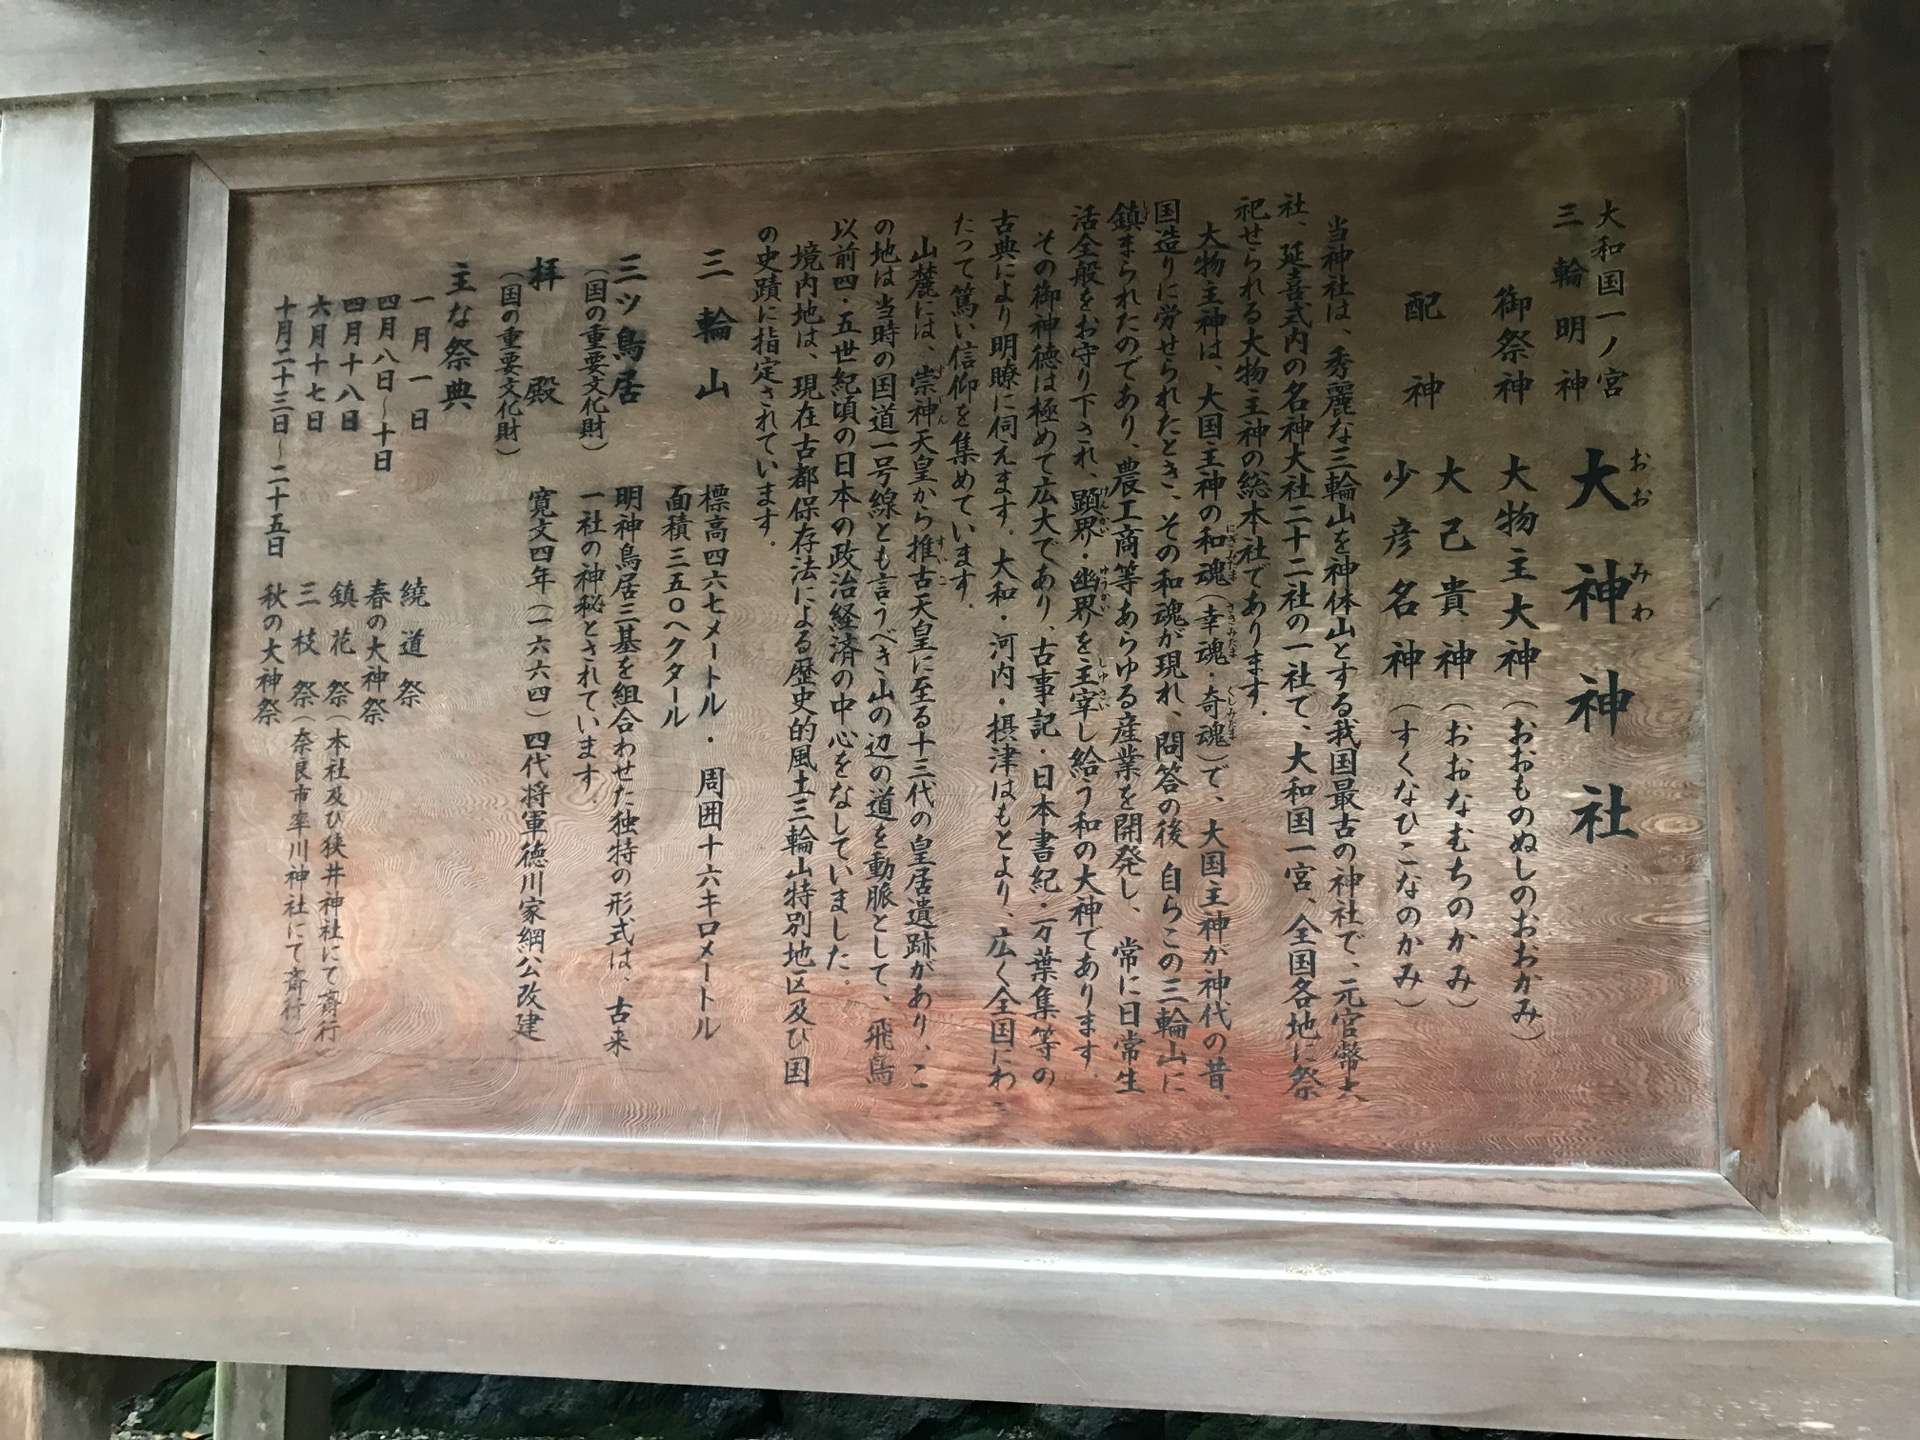 大和国一ノ宮
三輪明神
大神神社
おおみわ
御祭神 大物主大神（おおものぬしのおおかみ）
配神 大己貴神（おおなむちのかみ）
少彦名神（すくなひこなのかみ）
当神社は、秀麗な三輪山を神体山とする我国最古の神社で、元官幣大
社、延喜式内の名神大社二十二社の一社で、大和国一宮、全国各地に祭
祀せられる大物主神の総本社であります。
大物主神は、大国主神の和魂（幸魂・奇魂）で、大国主神が神代の昔、
にぎみたま さきみたま くしみたま
国造りに労せられたとき、その和魂が現れ、問答の後 自らこの三輪山に
鎮まられたのであり、農工商等あらゆる産業を開発し、常に日常生
活全般をお守り下され、顕界・幽界を主宰し給う和の大神であります。
けんかい ゆうかい しゅさい
その御神徳は極めて広大であり、古事記・日本書紀・万葉集等の
古典により明瞭に伺えます。大和・河内・摂津はもとより、広く全国にわ
たって篤い信仰を集めています。
山麓には、崇神天皇から推古天皇に至る十三代の皇居遺跡があり、こ
すいこ
の地は当時の国道一号線とも言うべき山の辺の道を動脈として、飛鳥
以前四・五世紀頃の日本の政治経済の中心をなしていました。
境内地は、現在古都保存法による歴史的風土三輪山特別地区及び国
の史蹟に指定されています。
三輪山 標高四六七メートル・周囲十六キロメートル
面積三五〇ヘクタール
三ツ鳥居 明神鳥居三基を組合わせた独特の形式は、古来
（国の重要文化財） 一社の神秘とされています。
拝殿 寛文四年（一六六四）四代将軍徳川家綱公改建
（国の重要文化財）
主な祭典
一月一日 繞道祭
四月八日～十日 春の大神祭
四月十八日 鎮花祭（本社及び狭井神社にて斎行）
六月十七日 三枝祭（奈良市率川神社にて斎行）
十月二十三日～二十五日 秋の大神祭